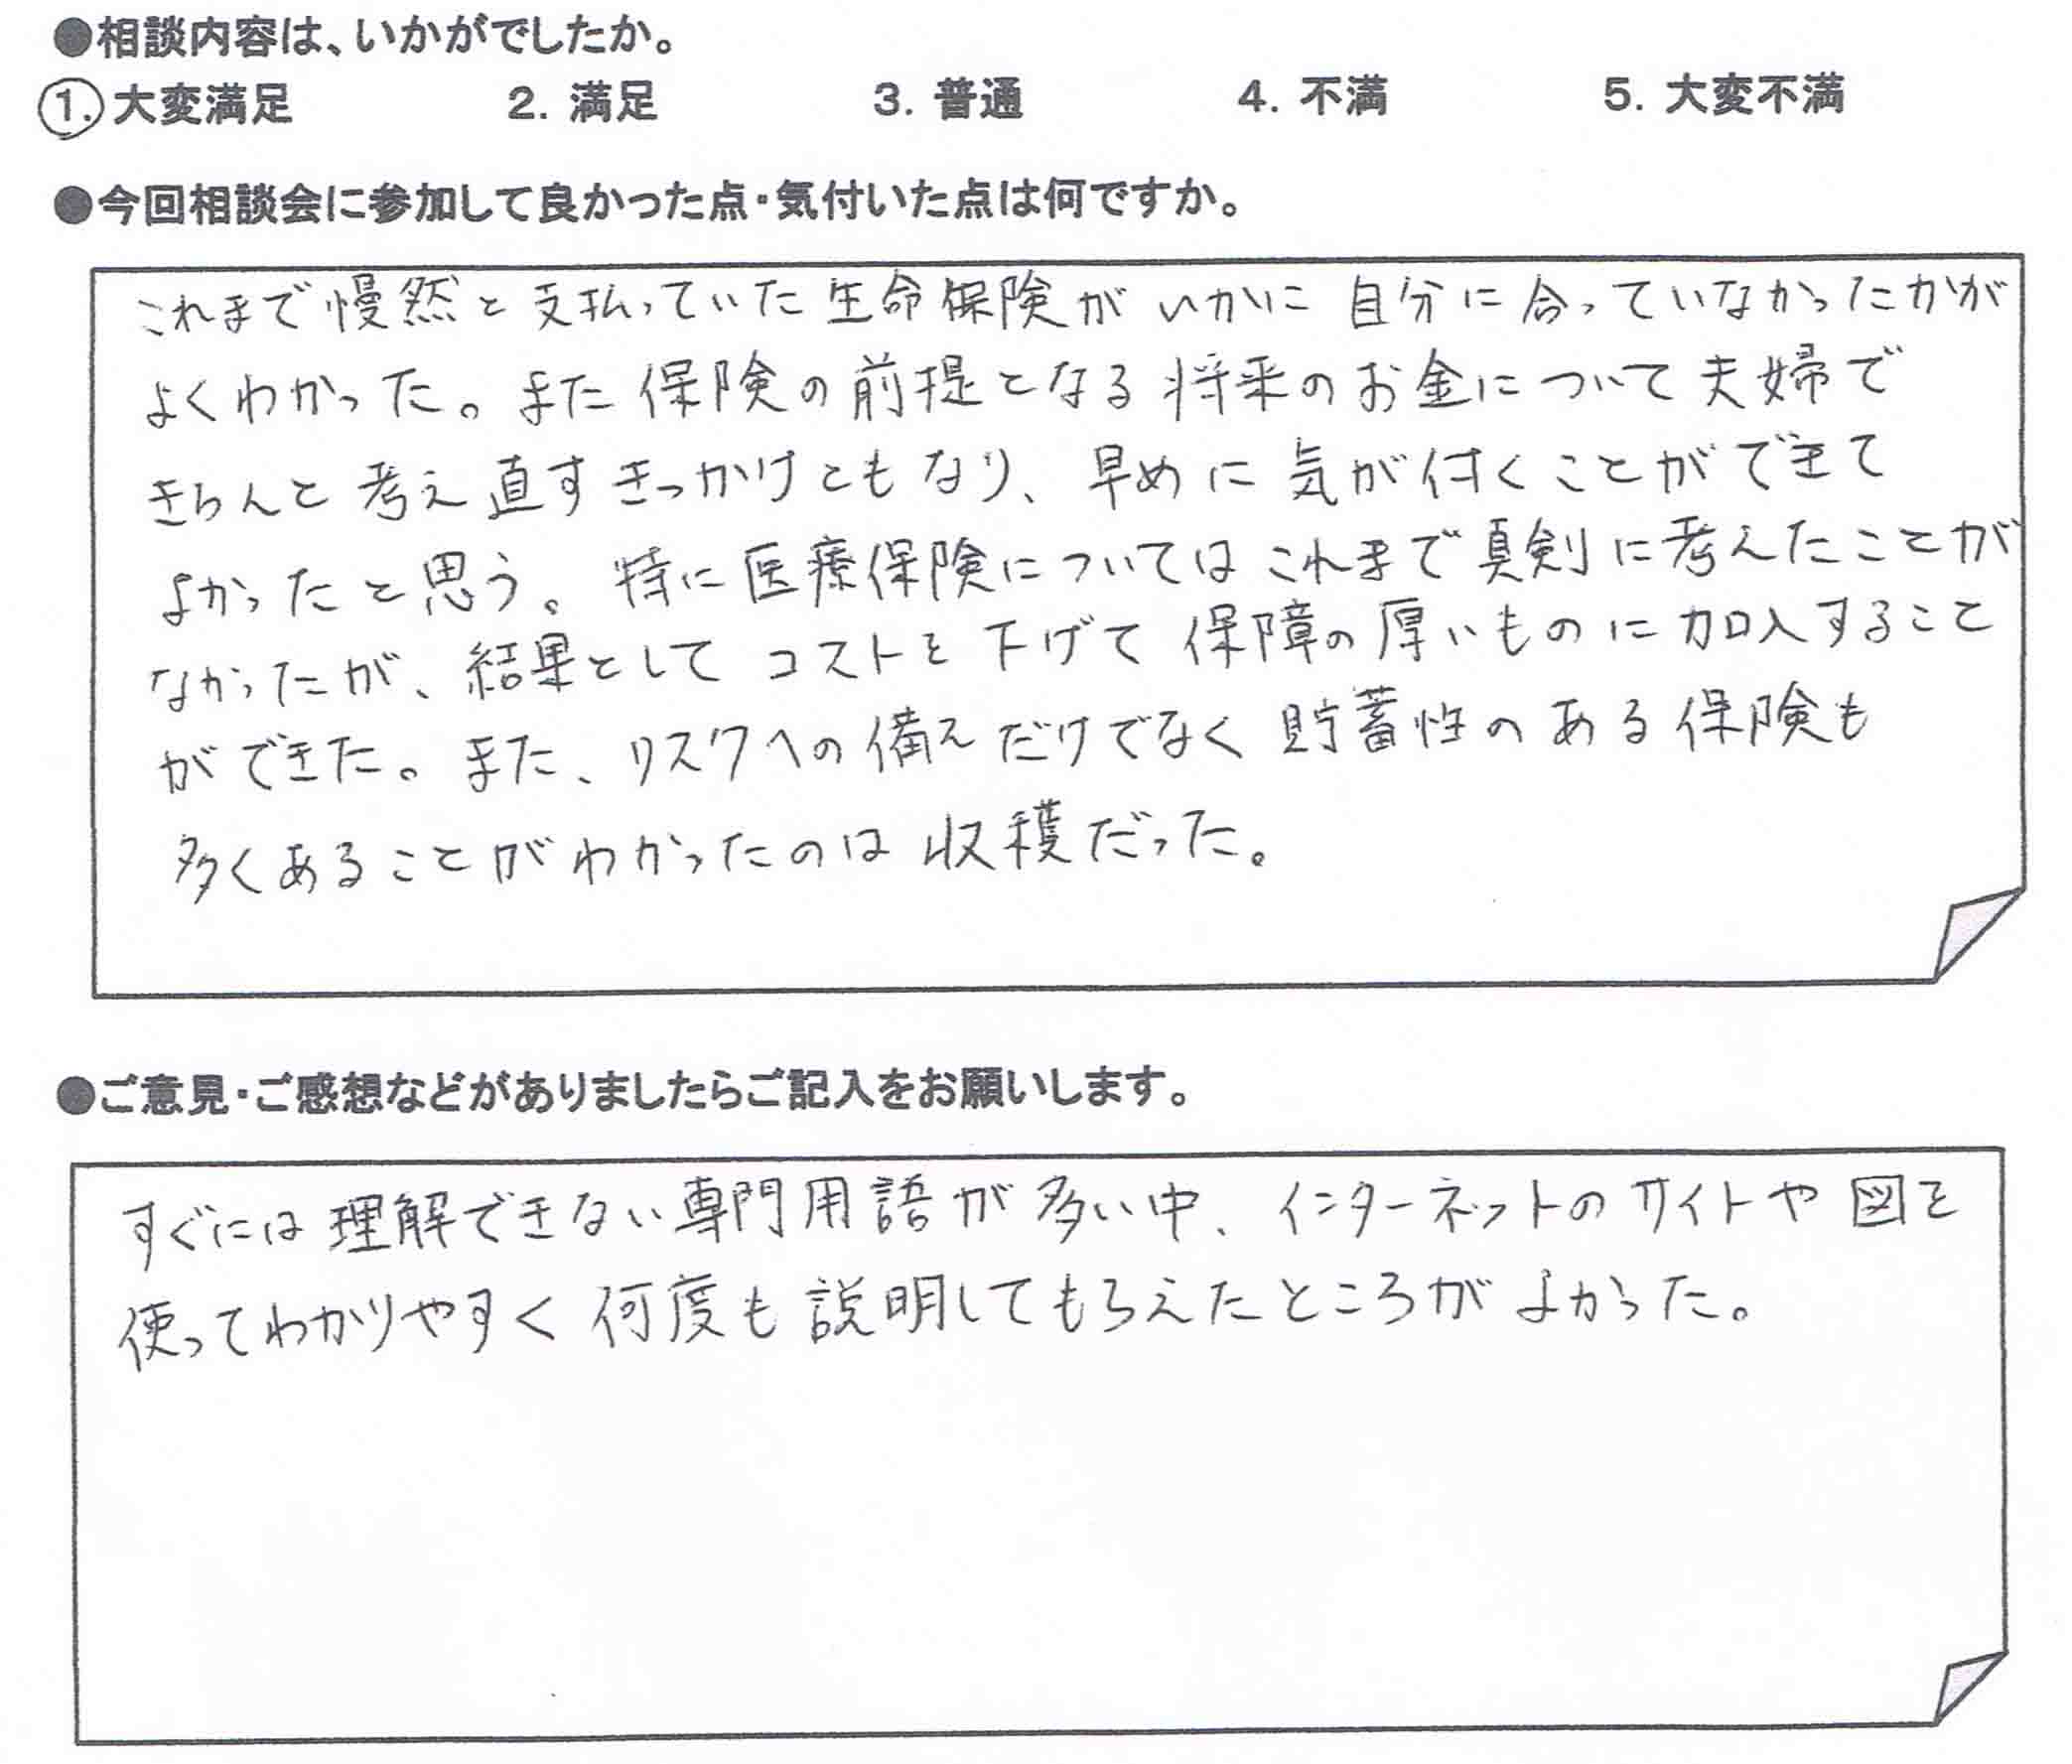 ●相談内容は、いかがでしたか。
1. 大変満足 2. 満足 3. 普通 4. 不満 5. 大変不満
●今回相談会に参加して良かった点・気付いた点は何ですか。
これまで慢然と支払っていた生命保険がいかに自分に合っていなかったかが
よくわかった。また保険の前提となる将来のお金について夫婦で
きちんと考え直すきっかけともなり、早めに気が付くことができて
よかったと思う。特に医療保険についてはこれまで真剣に考えたことが
なかったが、結果としてコストを下げて保障の厚いものに加入すること
ができた。また、リスクへの備えだけでなく貯蓄性のある保険も
多くあることがわかったのは収穫だった。
●ご意見・ご感想などがありましたらご記入をお願いします。
すぐには理解できない専門用語が多い中、インターネットのサイトや図を
使ってわかりやすく何度も説明してもらえたところがよかった。